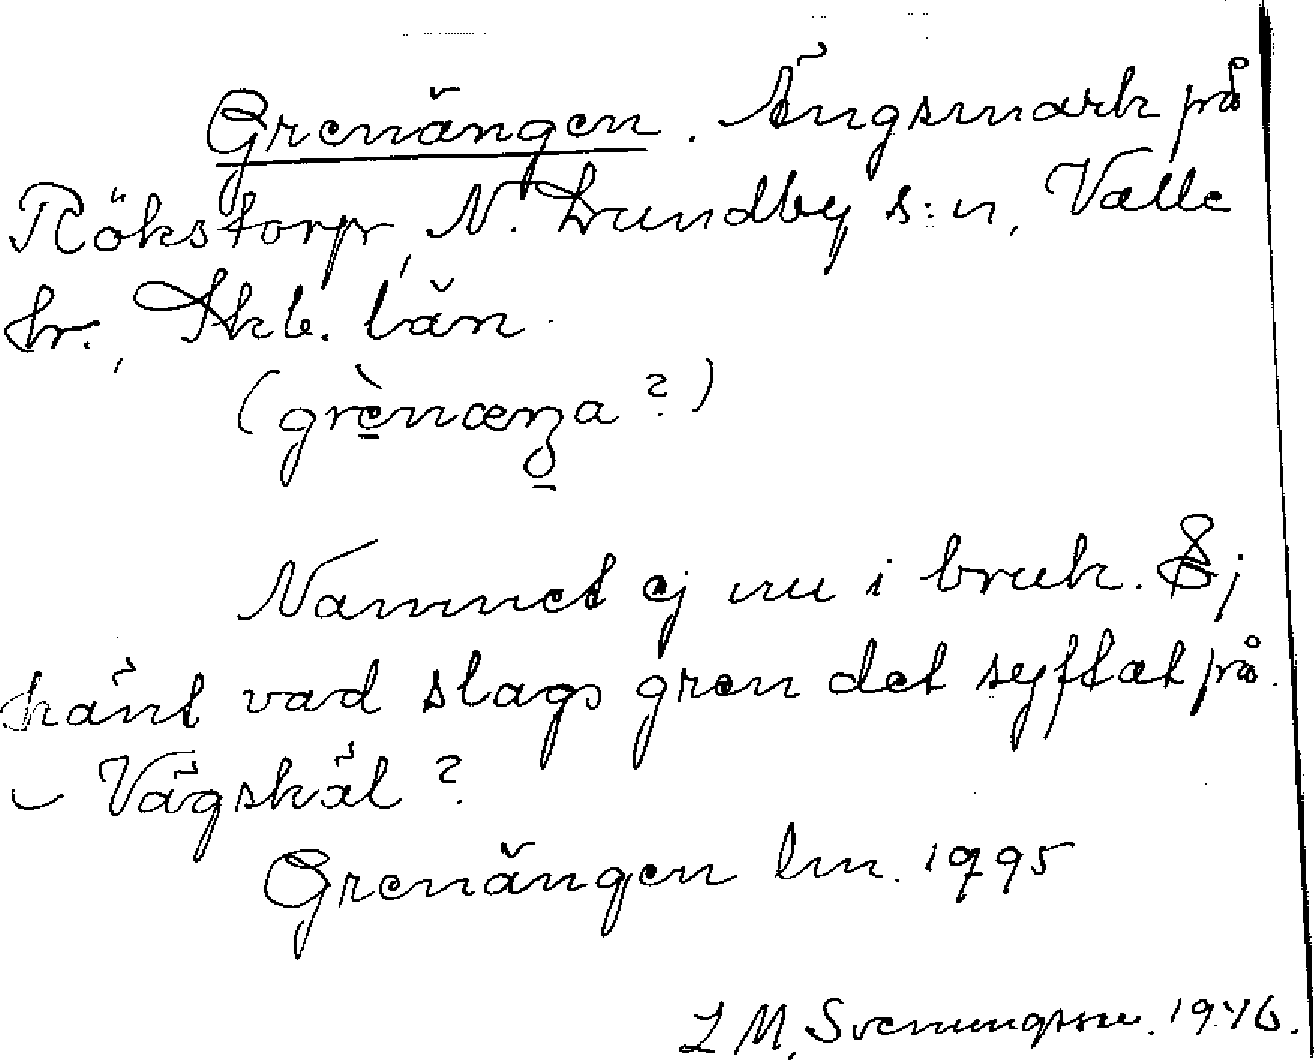 Grenängen. Ängsmark på
Rökstorp, N. Lundby s:n, Valle
hr., Skb. län.
(grènæŋa?)
Namnet ej nu i bruk. Ej
känt vad slags gren det syftat på.
– Vägskäl?
Grenängen lm. 1795
L M. Svenungsson. 1946.